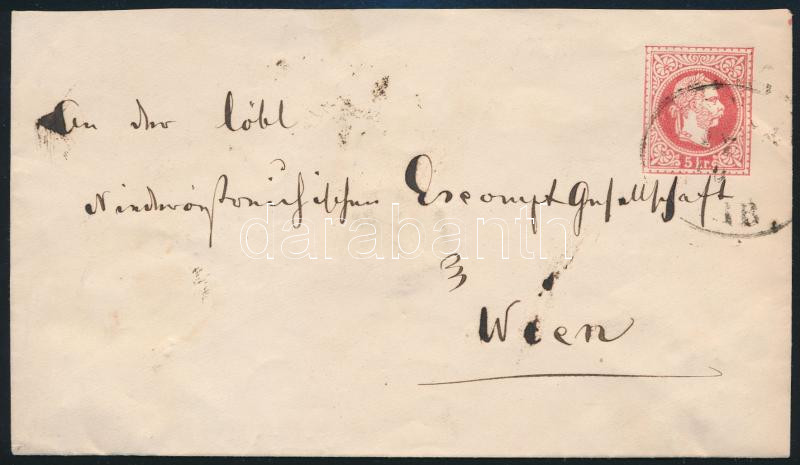 An der löbl
Niederöstreichischen Escompt Gesellschaft
Wien
5 kr.
darabanth